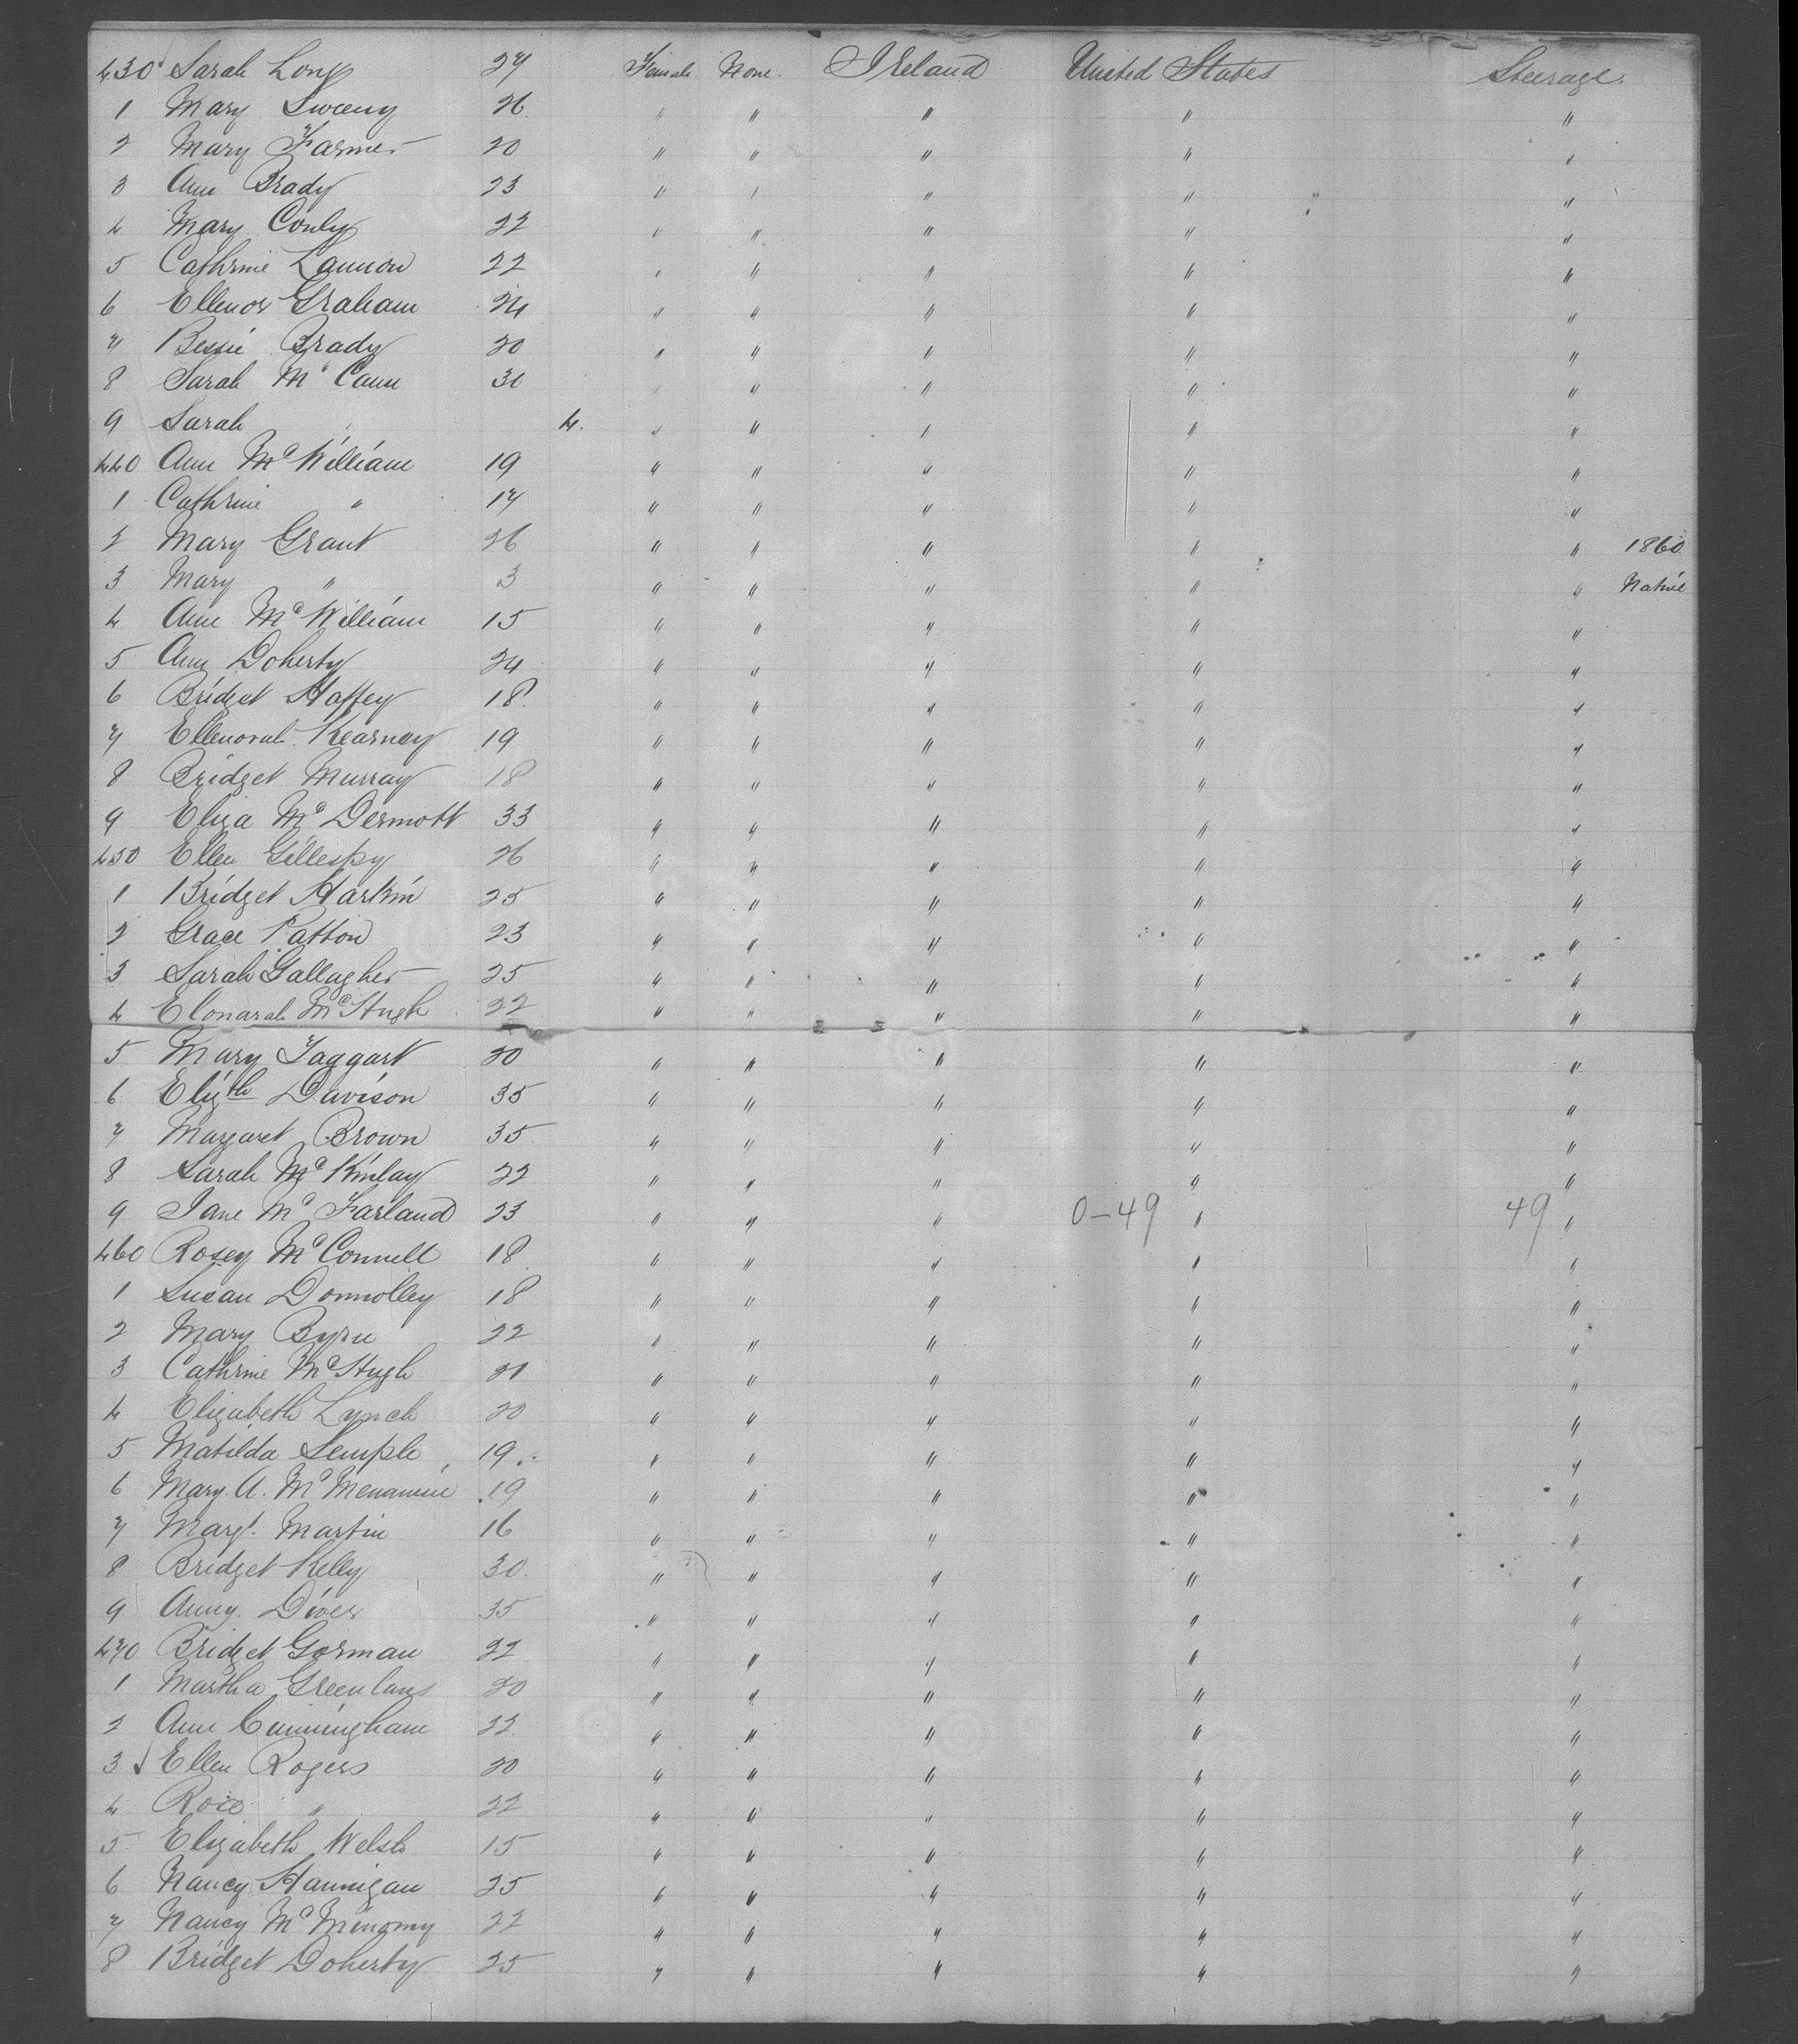 430 Sarah Long 27 Female None Ireland United States Steerage.
1 Mary Sweeny 26 " " " " "
2 Mary Farmer 20 " " " " "
3 Ann Brady 23 " " " " "
4 Mary Conly 22 " " " " "
5 Cathrine Lannon 22 " " " " "
6 Ellenor Graham 24 " " " " "
7 Bessie Brady 20 " " " " "
8 Sarah Mc Cann 30 " " " " "
9 Sarah " 4. " " " " "
440 Ann Mc William 19 " " " " "
1 Cathrine " 17 " " " " "
2 Mary Grant 26 " " " " " 1860
3 Mary " 3 " " " " " Native
4 Ann Mc William 15 " " " " "
5 Ann Doherty 24 " " " " "
6 Bridget Haffey 18 " " " " "
7 Ellenorah Kearney 19 " " " " "
8 Bridget Murray 18 " " " " "
9 Eliza Mc Dermott 33 " " " " "
450 Ellen Gillespy 26 " " " " "
1 Bridget Harkin 25 " " " " "
2 Grace Patton 23 " " " " "
3 Sarah Gallagher 25 " " " " "
4 Elonarah McHugh 22 " " " " "
5 Mary Taggart 20 " " " " "
6 Elizth Davison 35 " " " " "
7 Margaret Brown 35 " " " " "
8 Sarah Mc Kinlay 22 " " " " "
9 Jane Mc Farland 23 " " " 0-49 " 49 "
460 Rosey Mc Connell 18 " " " " "
1 Susan Donnolley 18 " " " " "
2 Mary Byrn 22 " " " " "
3 Cathrine McHugh 21 " " " " "
4 Elizabeth Lynch 20 " " " " "
5 Matilda Semple 19 " " " " "
6 Mary A. Mc Menamin 19 " " " " "
7 Margt. Martin 16 " " " " "
8 Bridget Kelly 30 " " " " "
9 Anny Diver 35 " " " " "
470 Bridget Gorman 22 " " " " "
1 Martha Greenlans 20 " " " " "
2 Ann Cunningham 22 " " " " "
3 Ellen Rogers 20 " " " " "
4 Rose " 22 " " " " "
5 Elizabeth Welsh 15 " " " " "
6 Nancy Hannigan 25 " " " " "
7 Nancy Mc Minomy 22 " " " " "
8 Bridget Doherty 25 " " " " "